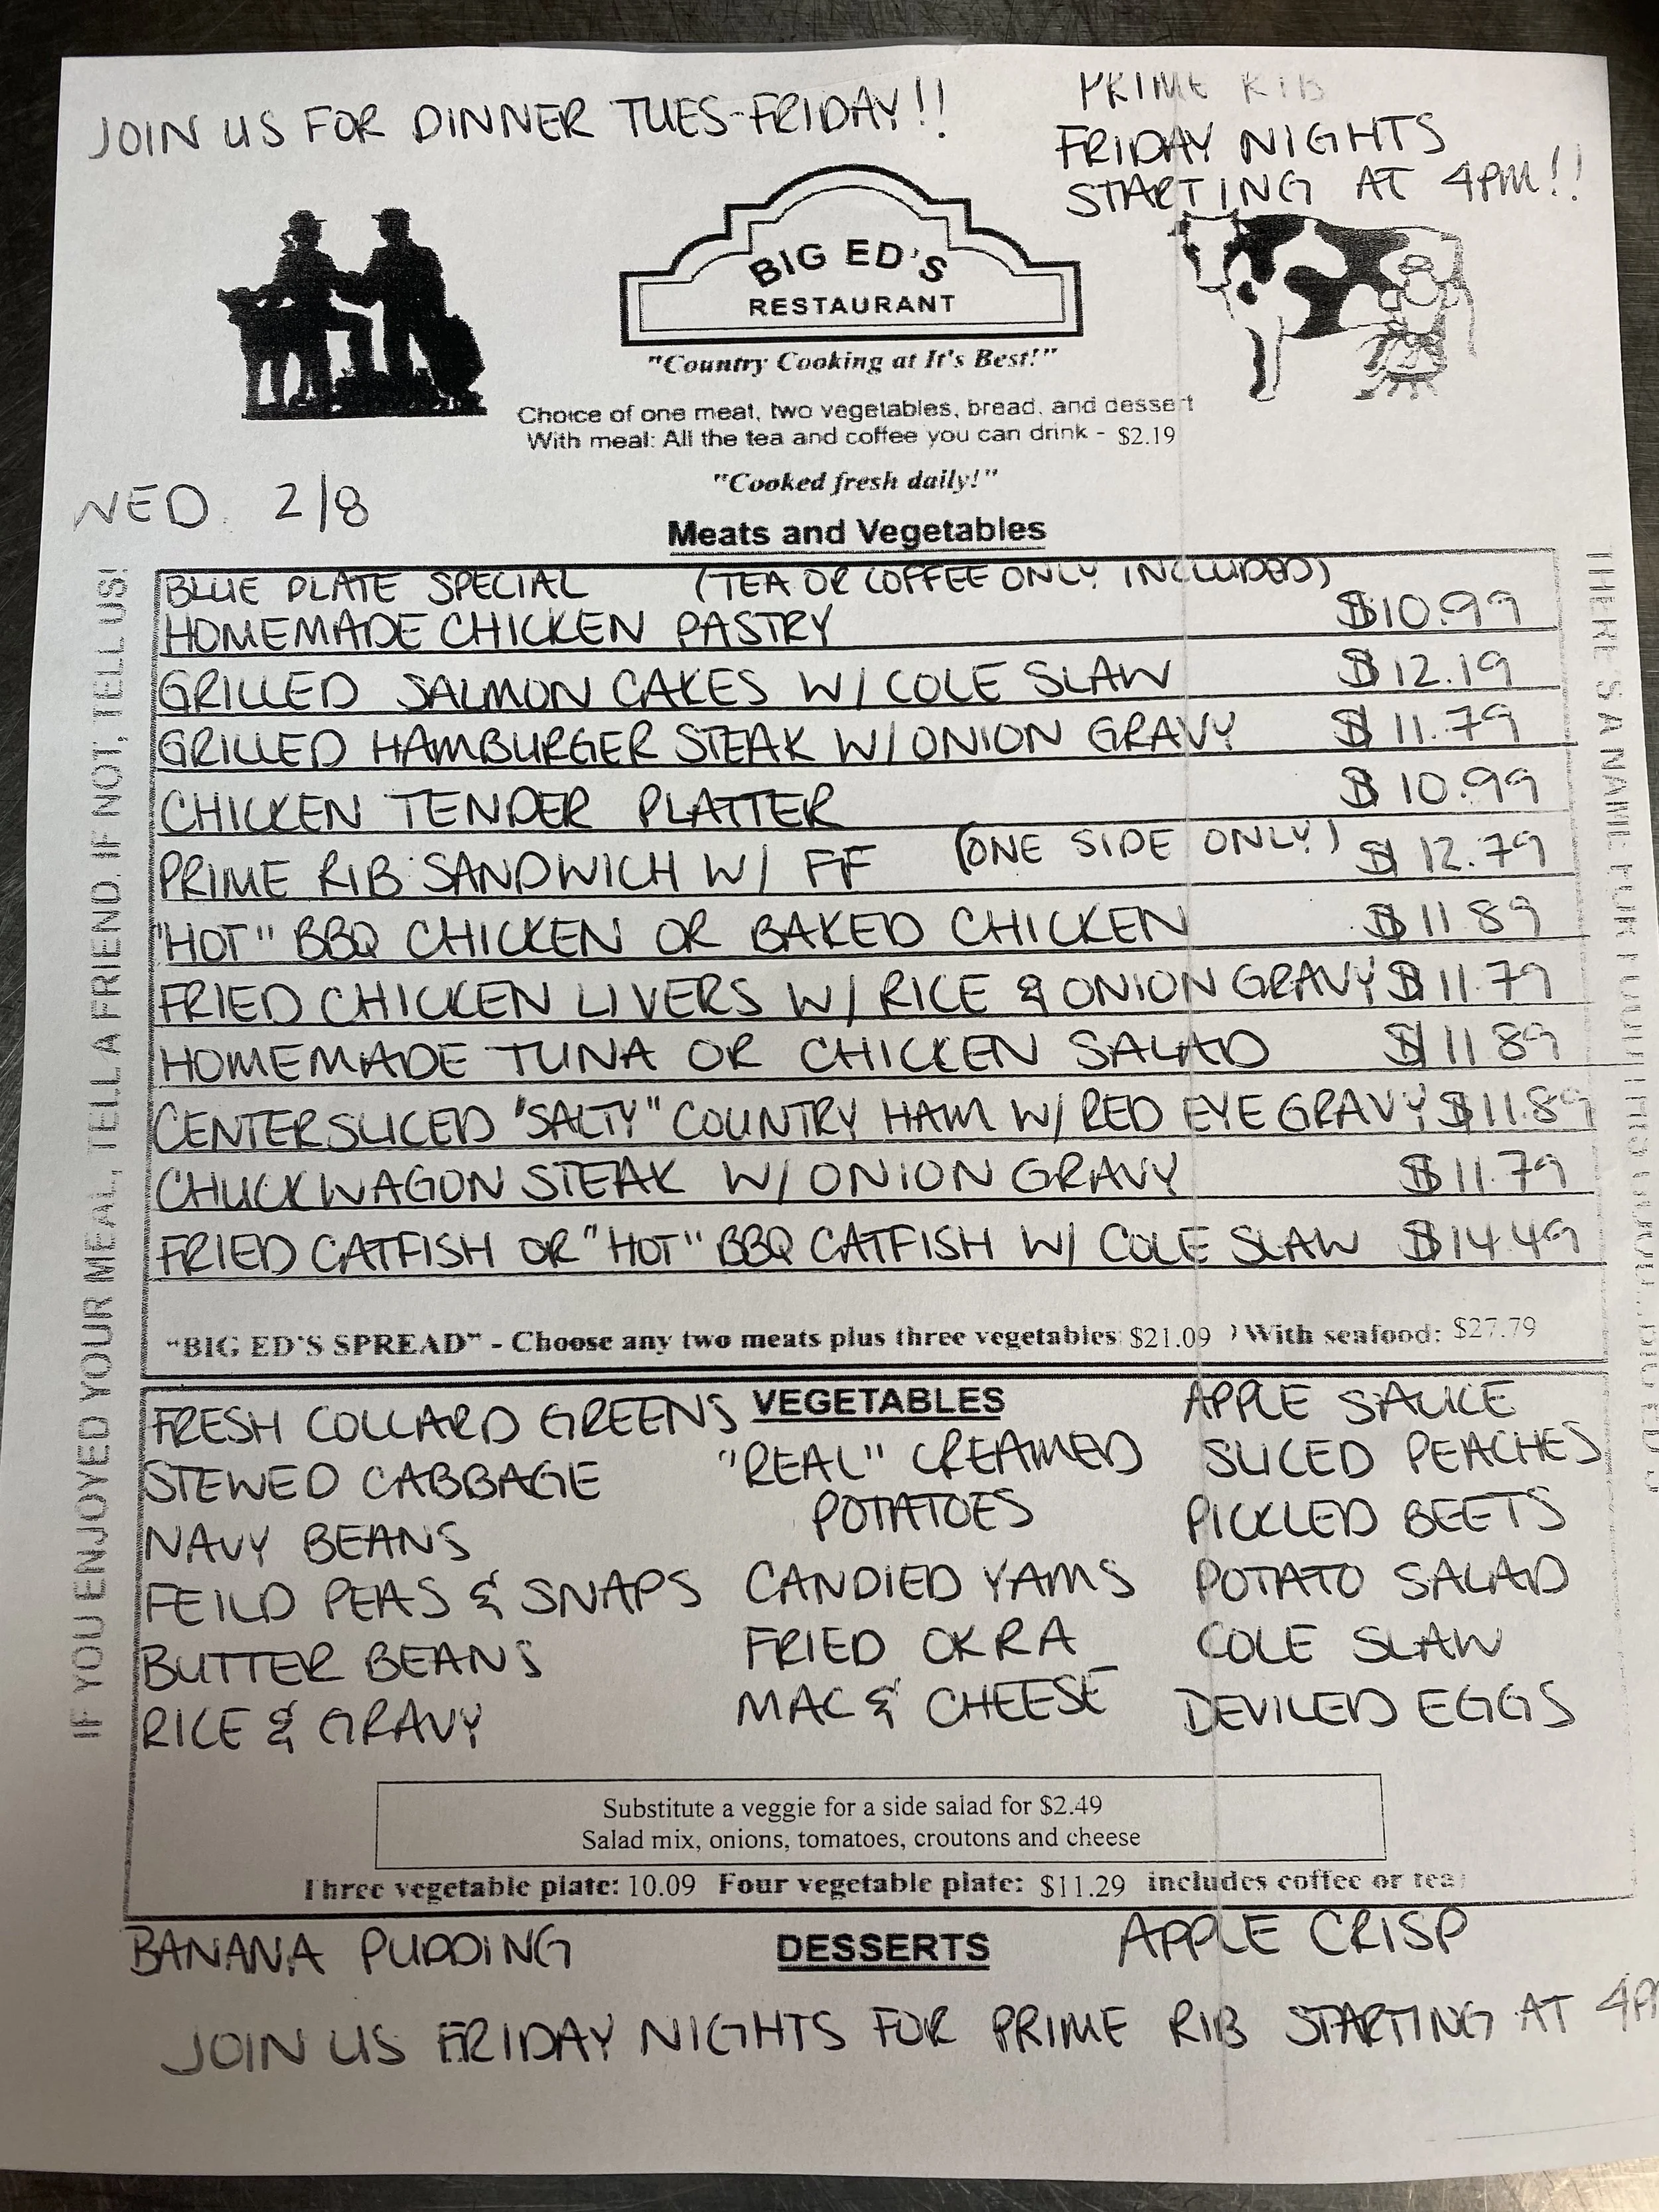 JOIN US FOR DINNER TUES-FRIDAY!!
PRIME RIB
FRIDAY NIGHTS
STARTING AT 4PM!!
BIG ED'S
RESTAURANT
"Country Cooking at It's Best!"
Choice of one meat, two vegetables, bread, and dessert
With meal: All the tea and coffee you can drink - $2.19
"Cooked fresh daily!"
WED. 2/8
Meats and Vegetables
BLUE PLATE SPECIAL (TEA OR COFFEE ONLY INCLUDED)
HOMEMADE CHICKEN PASTRY $10.99
GRILLED SALMON CAKES W/ COLE SLAW $12.19
GRILLED HAMBURGER STEAK W/ ONION GRAVY $11.79
CHICKEN TENDER PLATTER $10.99
PRIME RIB SANDWICH W/ FF (ONE SIDE ONLY) $12.79
"HOT" BBQ CHICKEN OR BAKED CHICKEN $11.89
FRIED CHICKEN LIVERS W/ RICE & ONION GRAVY $11.79
HOMEMADE TUNA OR CHICKEN SALAD $11.89
CENTER SLICED "SALTY" COUNTRY HAM W/ RED EYE GRAVY $11.89
CHUCKWAGON STEAK W/ ONION GRAVY $11.79
FRIED CATFISH OR "HOT" BBQ CATFISH W/ COLE SLAW $14.49
"BIG ED'S SPREAD" - Choose any two meats plus three vegetables $21.09 ) With seafood: $27.79
IF YOU ENJOYED YOUR MEAL, TELL A FRIEND. IF NOT, TELL US!
THERE'S A NAME FOR
VEGETABLES
FRESH COLLARD GREENS
STEWED CABBAGE
NAVY BEANS
FEILD PEAS & SNAPS
BUTTER BEANS
RICE & GRAVY
"REAL" CREAMED
POTATOES
CANDIED YAMS
FRIED OKRA
MAC & CHEESE
APPLE SAUCE
SLICED PEACHES
PICKLED BEETS
POTATO SALAD
COLE SLAW
DEVILED EGGS
Substitute a veggie for a side salad for $2.49
Salad mix, onions, tomatoes, croutons and cheese
Three vegetable plate: 10.09 Four vegetable plate: $11.29 includes coffee or tea
DESSERTS
BANANA PUDDING
APPLE CRISP
JOIN US FRIDAY NIGHTS FOR PRIME RIB STARTING AT 4PM